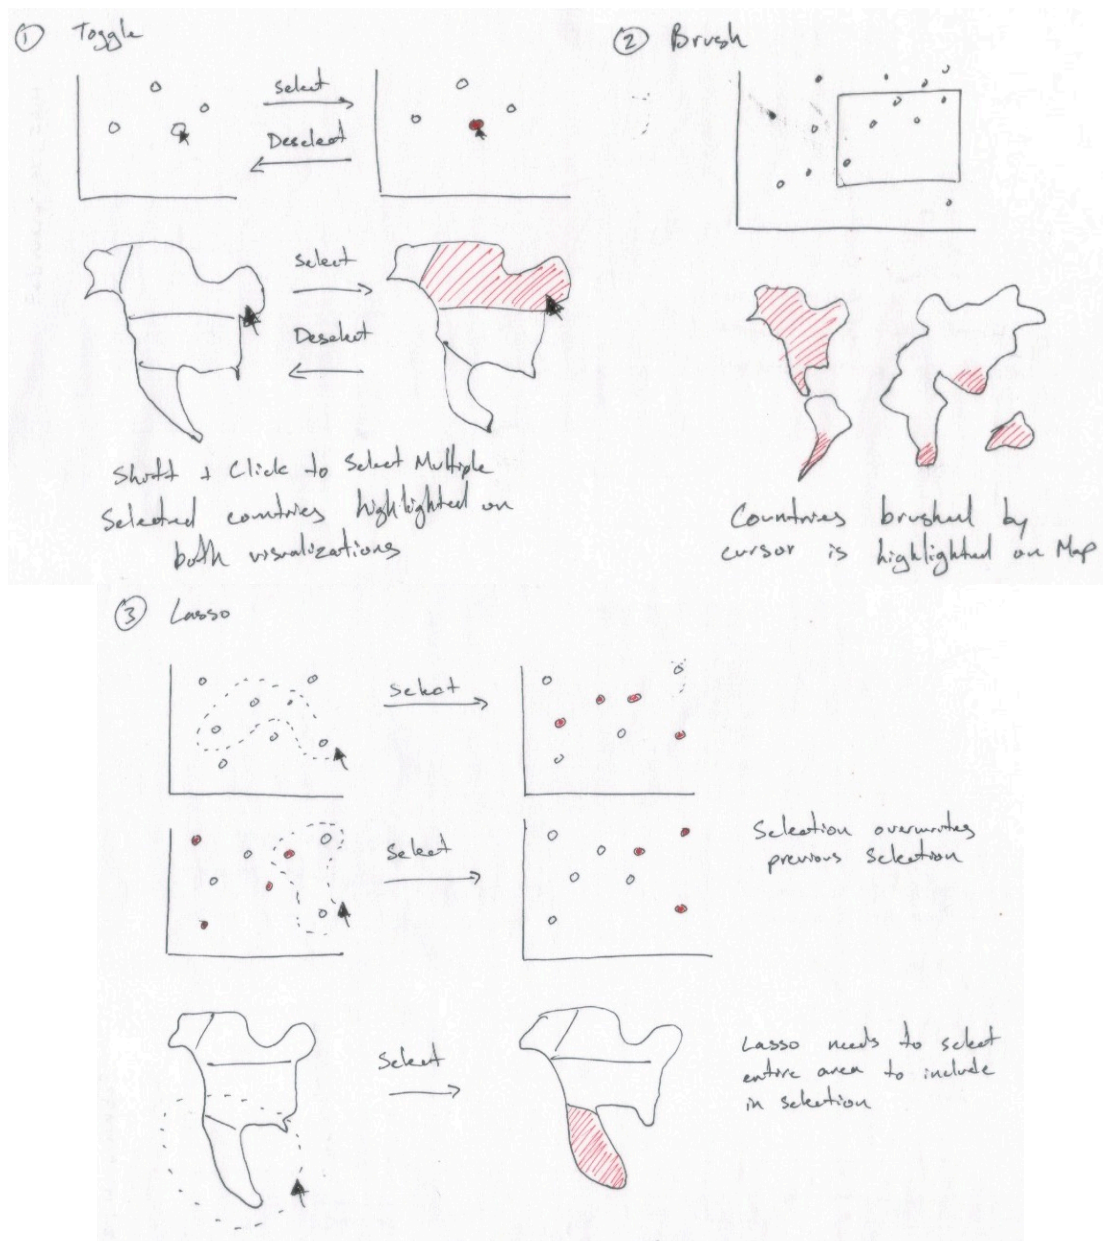 ① Toggle
select
Deselect
select
Deselect
Shift + Click to Select Multiple
Selected countries highlighted on
both visualizations
② Brush
Countries brushed by
cursor is highlighted on Map
③ Lasso
Select
Select
Selection overwrites
previous selection
Select
Lasso needs to select
entire area to include
in selection